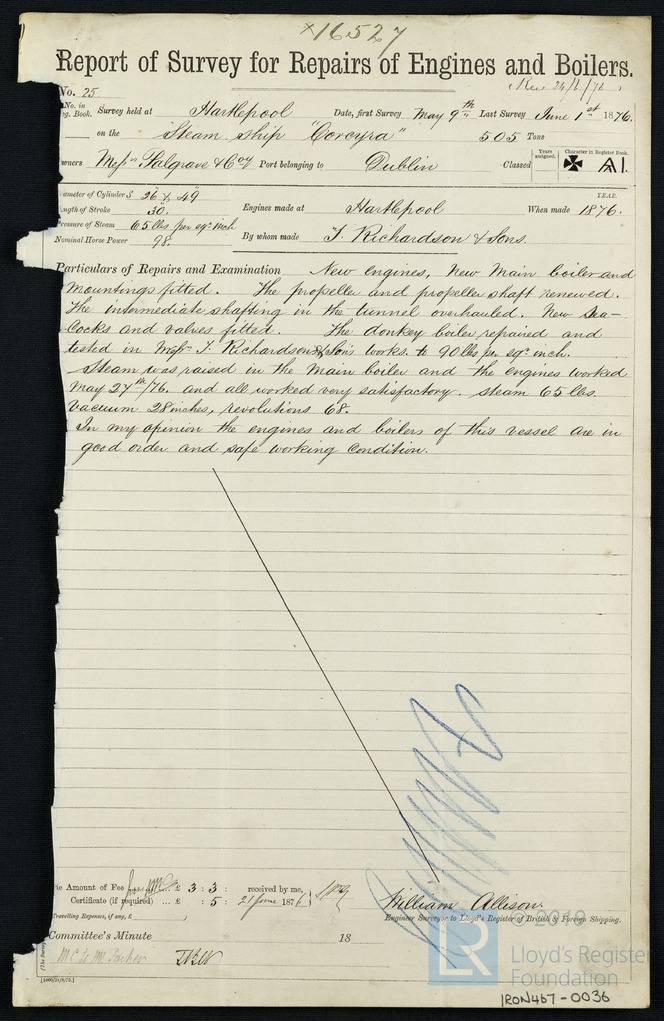 ×16527
Report of Survey for Repairs of Engines and Boilers.
No. 25
No. in Book. Survey held at Hartlepool Date, first Survey May 9th Last Survey June 1st 1876.
on the Steam ship "Corcyra" 505 Tons
Owners Messrs Palgrave & Coy Port belonging to Dublin Classed Years assigned. Character in Register Book. ✠ A1.
Diameter of Cylinders 26 & 49
Length of Stroke 30.
Pressure of Steam 65 lbs per sqr inch
Nominal Horse Power 98.
Engines made at Hartlepool When made YEAR. 1876.
By whom made T. Richardson & Sons.
Particulars of Repairs and Examination New engines, New Main boiler and
mountings fitted. The propeller and propeller shaft renewed.
The intermediate shafting in the tunnel overhauled. New Sea-
Cocks and valves fitted. The donkey boiler repaired and
tested in Messrs T. Richardson & Son's works. to 90 lbs per sqr inch.
Steam was raised in the Main boiler and the engines worked
May 27th/76. and all worked very satisfactory. Steam 65 lbs.
Vacuum 28 inches, revolutions 68.
In my openion the engines and boilers of this vessel are in
good order and safe working condition.
Amount of Fee £ 3 : 3 : received by me,
Certificate (if required) ... £ : 5 : 21 June 1876
Travelling Expenses, if any, £
William Allison.
Engineer Surveyor to Lloyd's Register of British & Foreign Shipping.
Committee's Minute 18
© 2019
LR
Lloyd's Register
Foundation
IRON467-0036